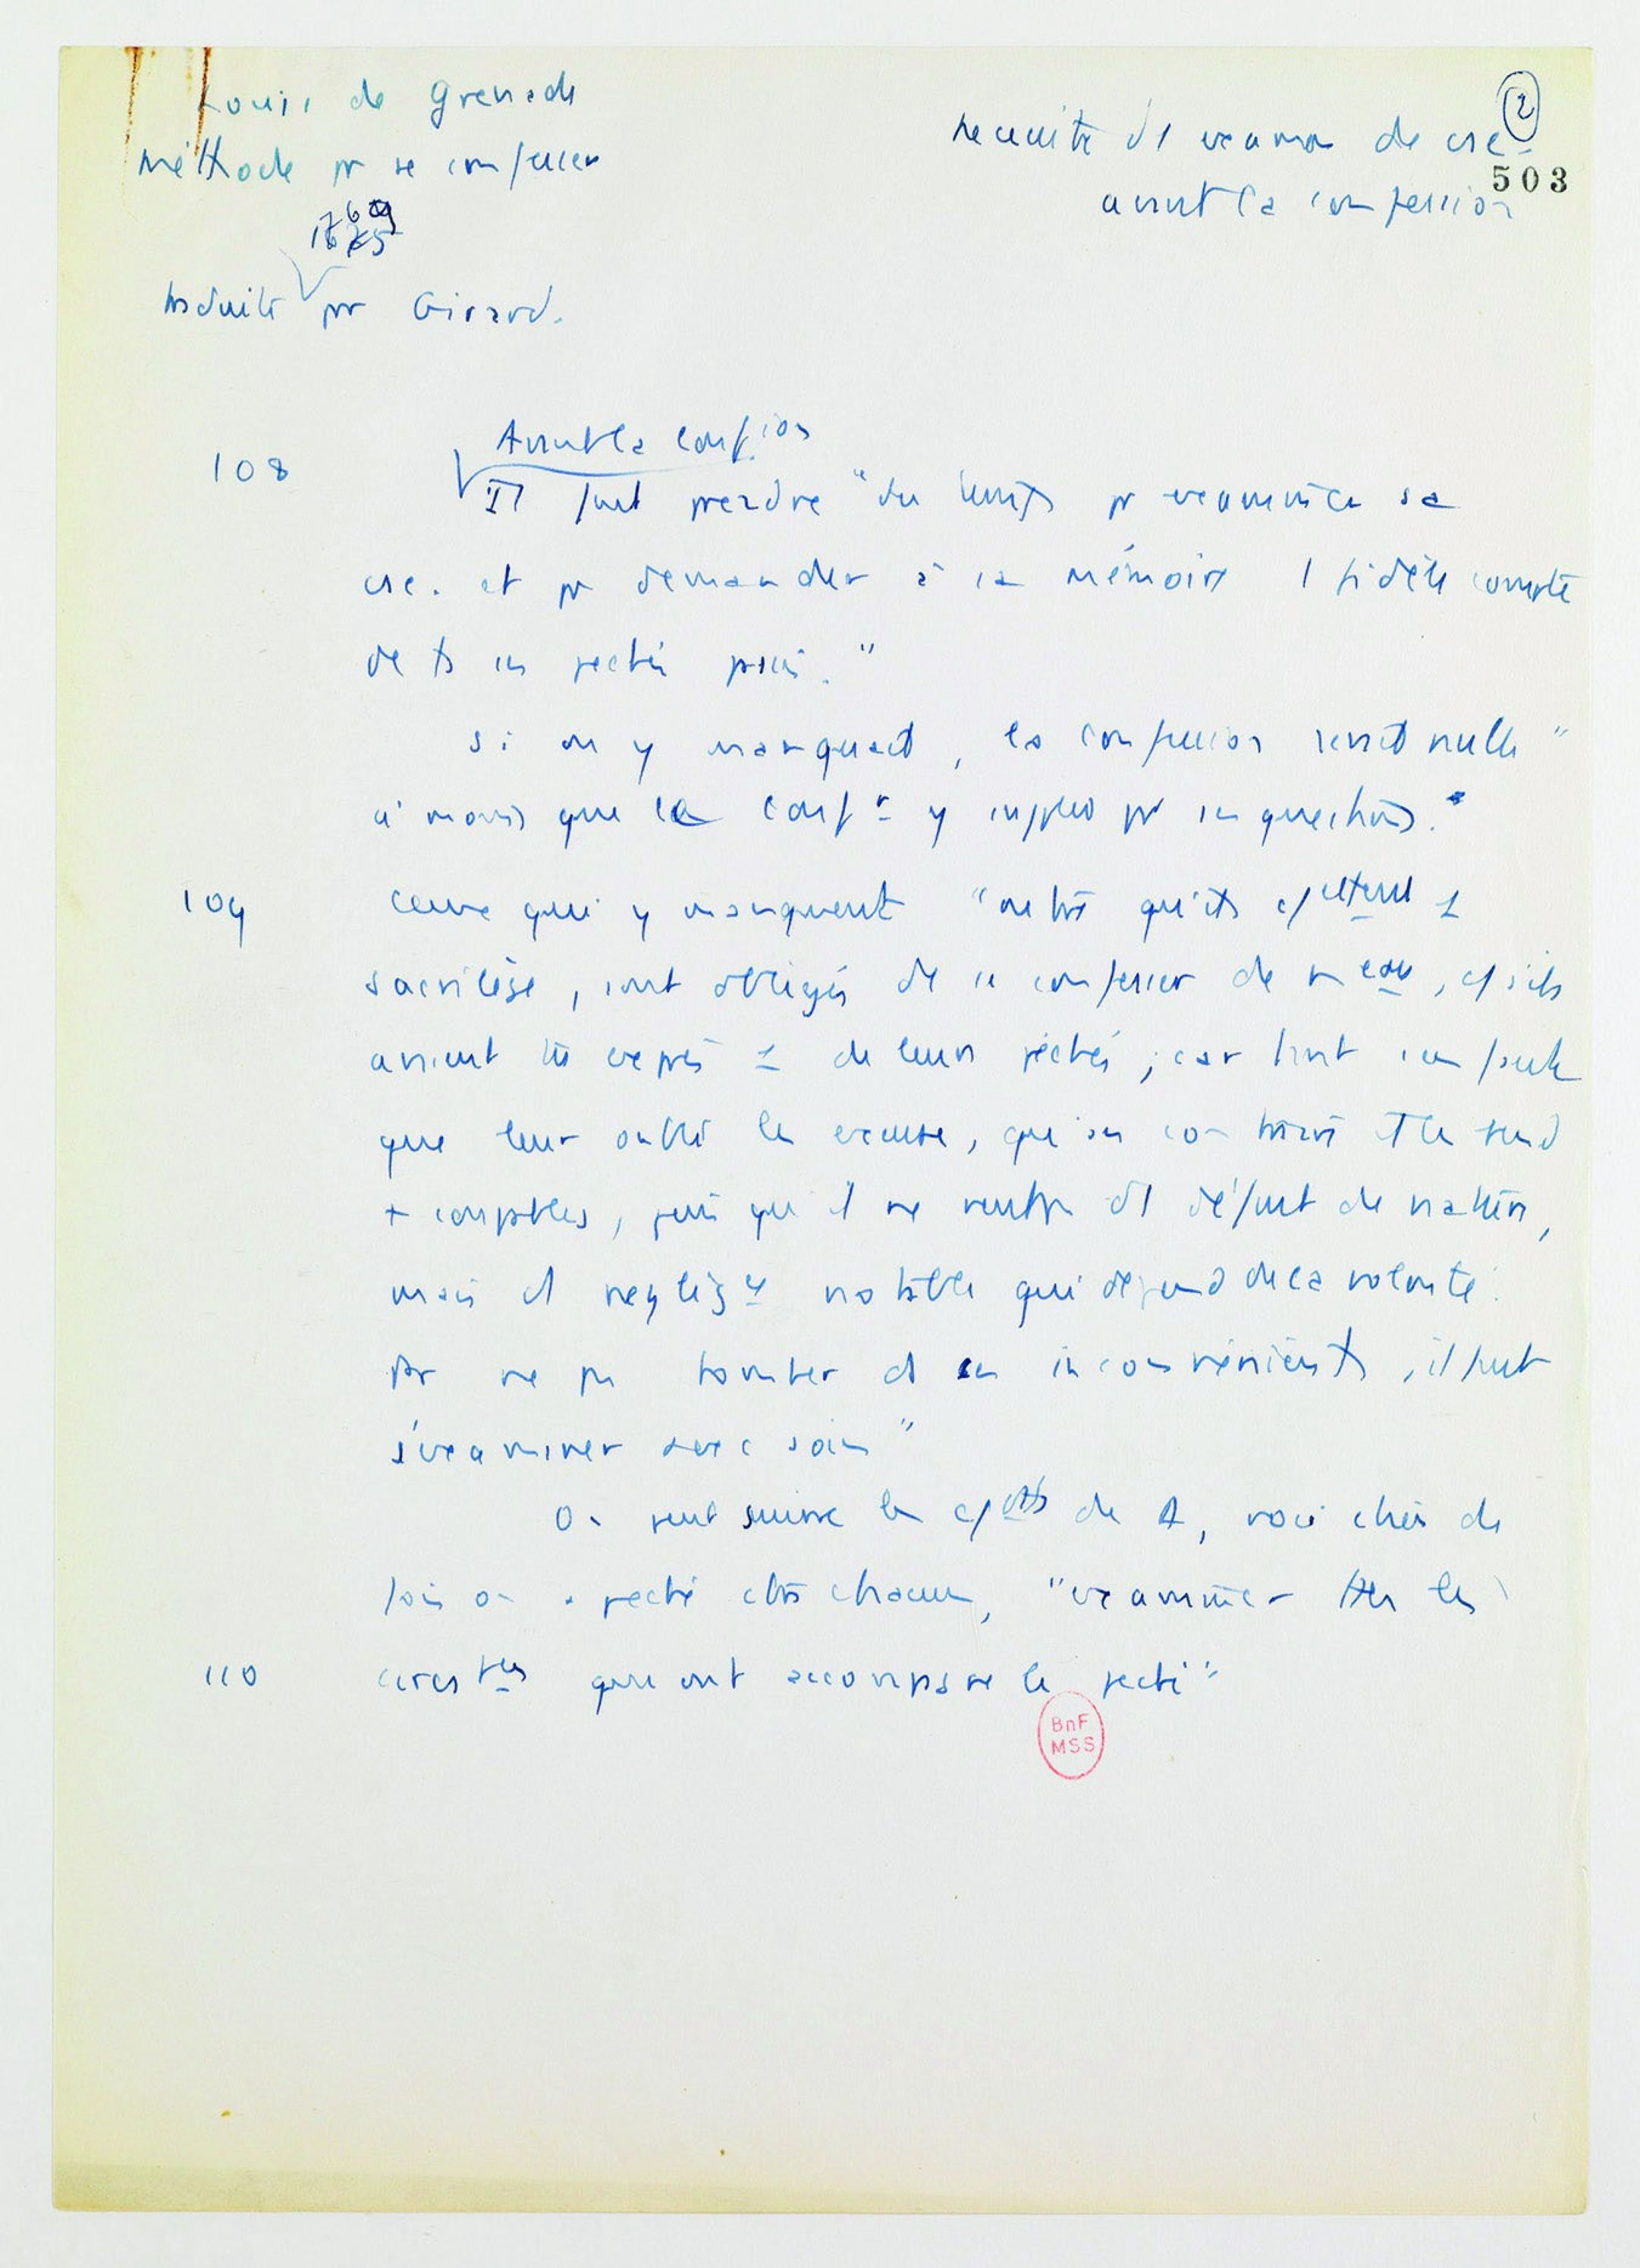 Louis de Grenade
Méthode pr se confesser
traduite pr Girard.
②
503
Necessité d'1 examen de csc
avant la confession
108
Avant la conf.ion
Il faut prendre "du temps pr examiner sa
csc. et pr demander à sa mémoire 1 fidèle compte
de ts ses pechés passés."
Si on y manquait, la confession serait nulle "
à moins que le confr y supplée pr ses questions."
109
Ceux qui y manquent "outre qu'ils cettent 1
sacrilège, sont obligés de se confesser de neau, c/ s'ils
avaient tu exprès 1 de leurs péchés ; car tant s'en faut
que leur oubli les excuse, qu'au contraire il les rend
+ coupables, puis qu'il ne vient pas d'1 défaut de
mais d'1 negligce notable qui dépend de la volonté.
Pr ne pas tomber ds ces inconvénients, il faut
s'examiner avec soin"
On peut suivre les c/dts de
fois on a peché ctre chacun, "examiner ttes les
110
circstces qui ont accompagné le peché"
BnF
MSS